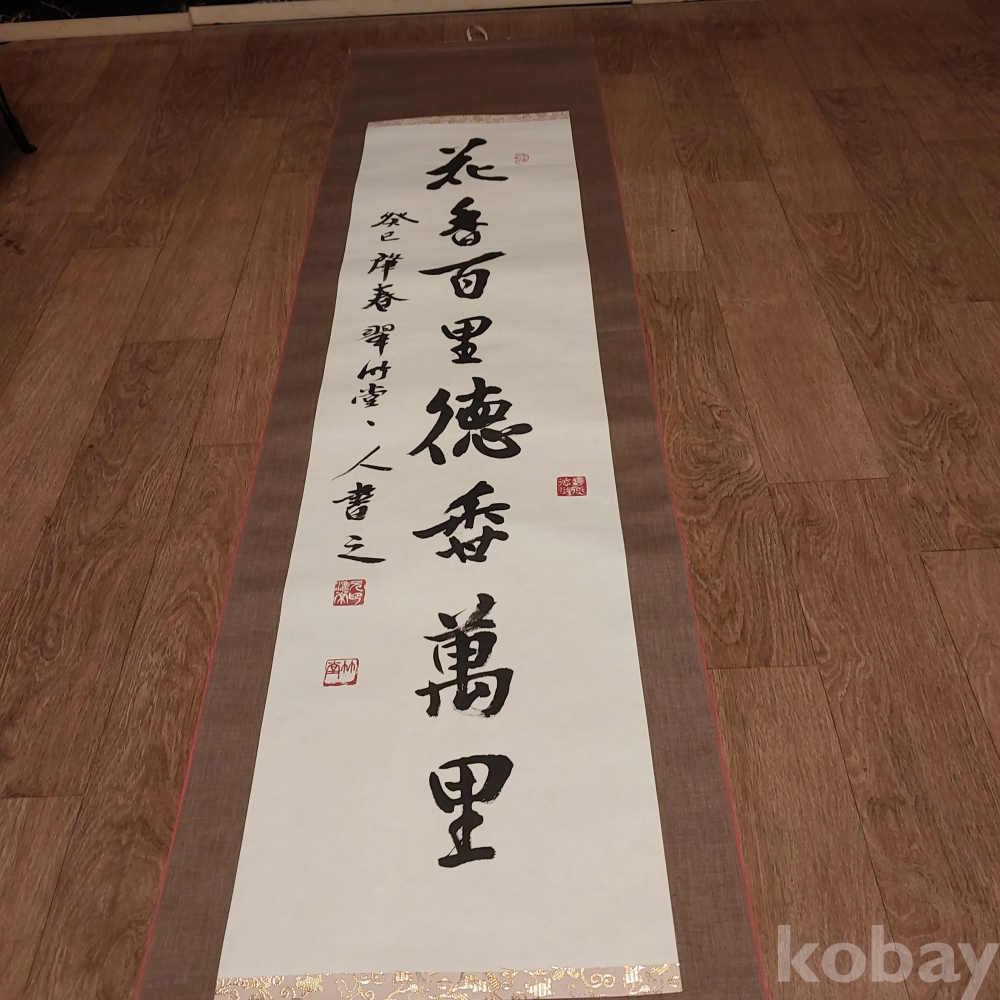 花香百里德香萬里
癸巳肇春翠竹堂、人書之
竹南
kobay